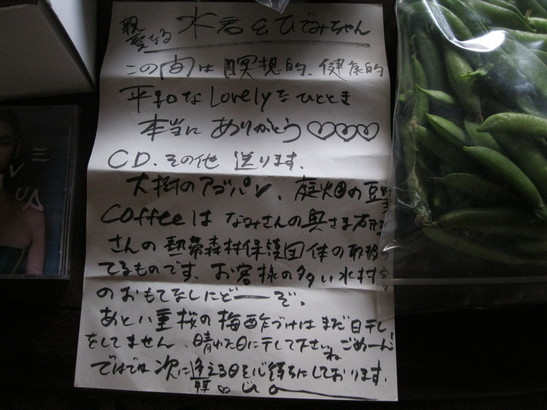 親愛なる 水君&ひでみちゃん
この間は瞑想的、健康的
平和なLovelyなひととき
本当にありがとう♡♡♡♡
CD、その他 送ります。
大樹のアゴパン、庭畑の豆
Coffeeは なみさんの奥さま
さんの熱帯森林保護団体の取扱
てるものです、お客様の多い水村
のおもてなしにどーぞ。
あと八重桜の梅酢づけはまだ日干し
をしてません、晴れた日に干して下さいね ごめーん
ではでは 次に逢える日を心待ちにしております。